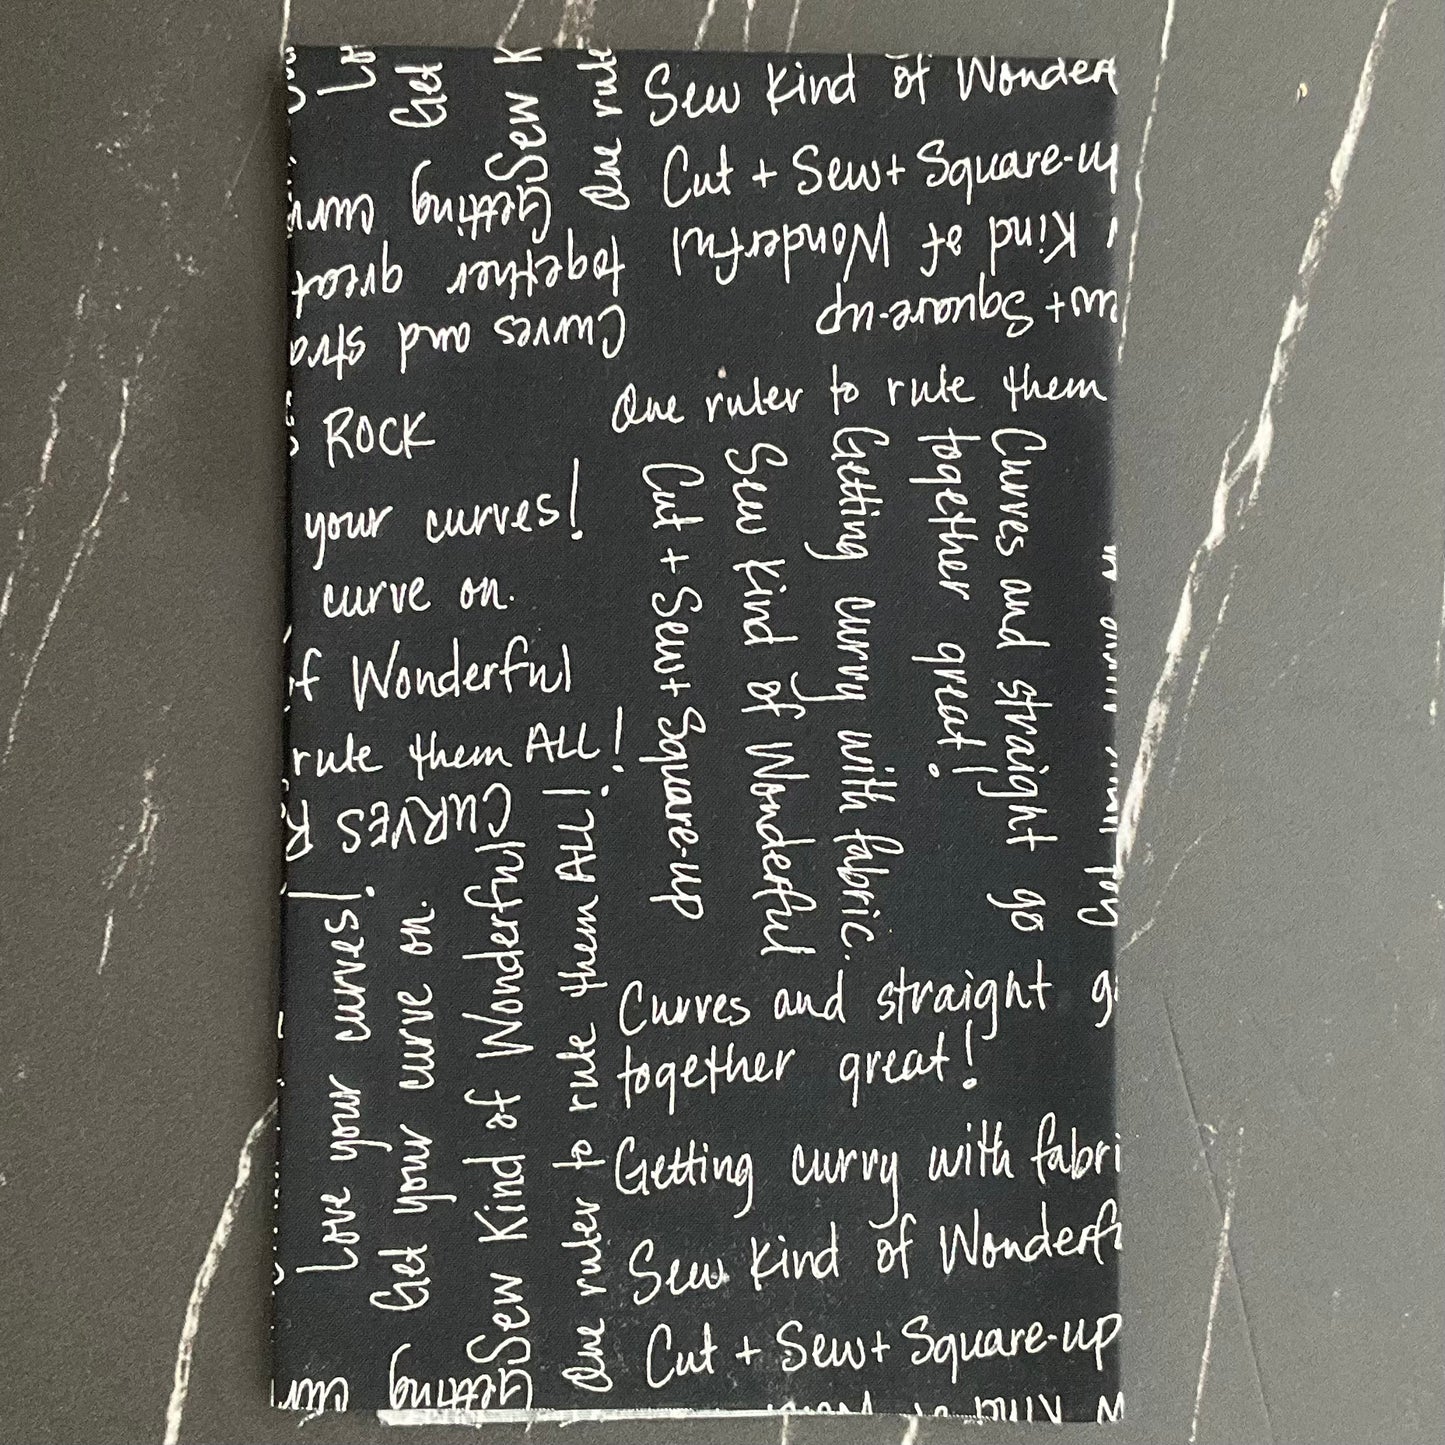 Sew Kind of Wonderf
Cut + Sew + Square-up
Kind of Wonderful
Square-up
Get
Sew K
One rule
Getting curv
together great
Curves and stra
One ruler to rule them
ROCK
your curves!
curve on.
of Wonderful
rule them ALL!
CURVES R
Cut + Sew + Square-up
Sew Kind of Wonderful
Getting curvy with fabric.
together great!
Curves and straight go
Love your curves!
Get your curve on.
Sew Kind of Wonderful
One ruler to rule them ALL!
Curves and straight g
together great!
Getting curvy with fabri
Sew Kind of Wonderf
Cut + Sew + Square-up
Getting cur